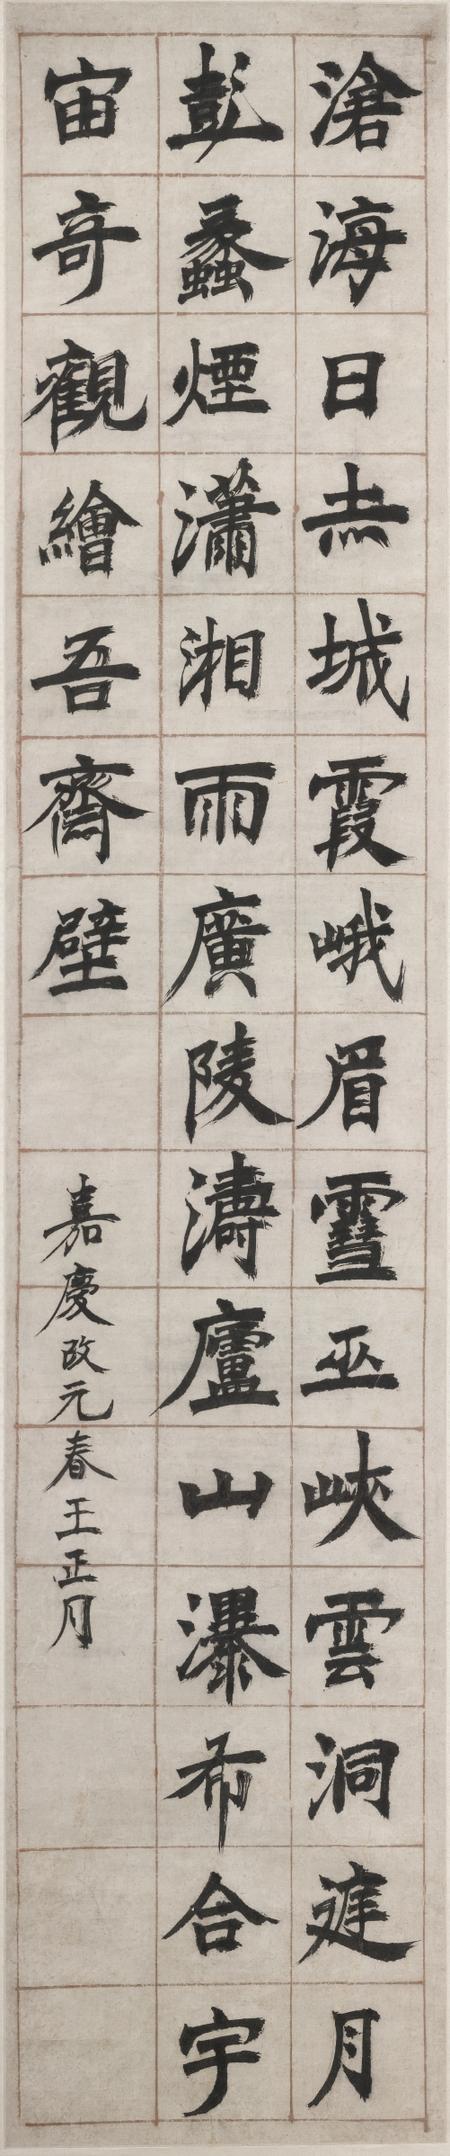 滄海日赤城霞峨眉雪巫峽雲洞庭月
彭蠡煙瀟湘雨廣陵濤廬山瀑布合宇
宙奇觀繪吾齋壁
嘉慶改元春王正月